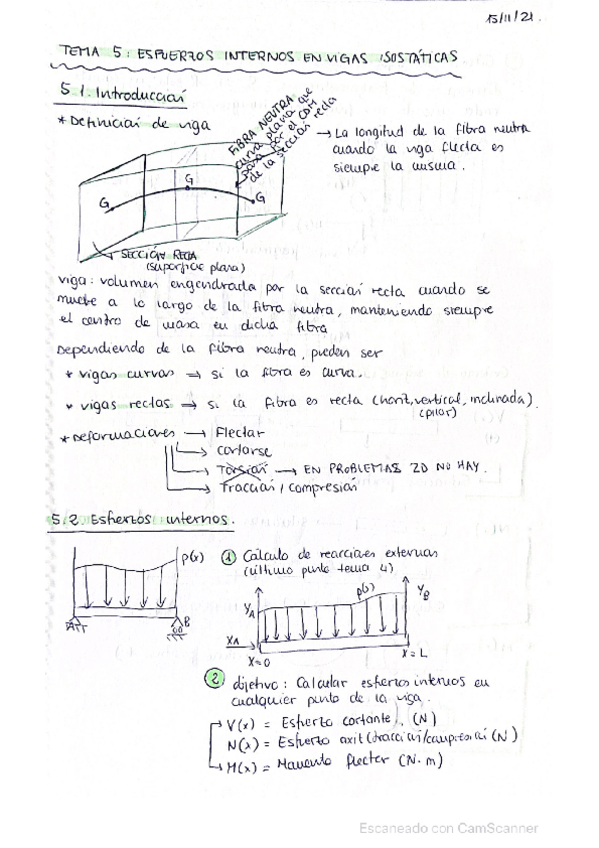 15/11/21.
TEMA 5: ESFUERZOS INTERNOS EN VIGAS ISOSTÁTICAS
5.1. Introducción
* Definición de viga
FIBRA NEUTRA:
curva plana que
pasa por el CDM
de la sección recta
→ La longitud de la fibra neutra
cuando la viga flecta es
siempre la misma.
G G G
SECCIÓN RECTA
(superficie plana)
viga: volumen engendrada por la sección recta cuando se
mueve a lo largo de la fibra neutra, manteniendo siempre
el centro de masa en dicha fibra
Dependiendo de la fibra neutra, pueden ser
* vigas curvas → si la fibra es curva.
* vigas rectas → si la fibra es recta (horit, vertical, inclinada)
(pilar)
* Deformaciones → Flectar
→ Cortarse
→ Torsión → EN PROBLEMAS 2D NO HAY.
→ Tracción / compresión
5.2. Esfuertos internos.
p(x)
A B
① Cálculo de reacciones externas
(último punto tema 4)
YA p(x) YB
XA
X=0 X=L
② objetivo: Calcular esfuerzo internos en
cualquier punto de la viga.
V(x) = Esfuerto cortante. (N)
N(x) = Esfuerto axil (tracción/compresión) (N)
M(x) = Momento flector (N·m)
Escaneado con CamScanner